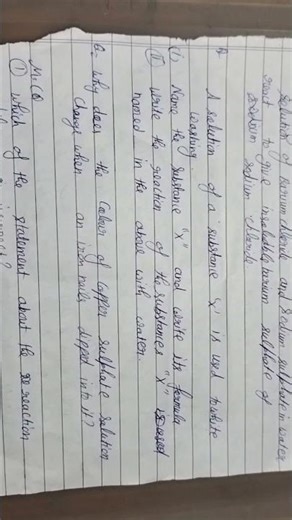 Solution of Barium chloride and Sodium sulphate in water
react to give insoluble barium sulphate of
sodium chloride
Q. A solution of a substance 'x' is used to white
washing
(i) Name the substance "x" and write its formula
(ii) Write the reaction of the substances "x"
named in the above with water.
Q. Why does the Colour of copper sulphate solution
Change when an iron nails dipped in to it?
MCQ
(1) Which of the statement about the reaction